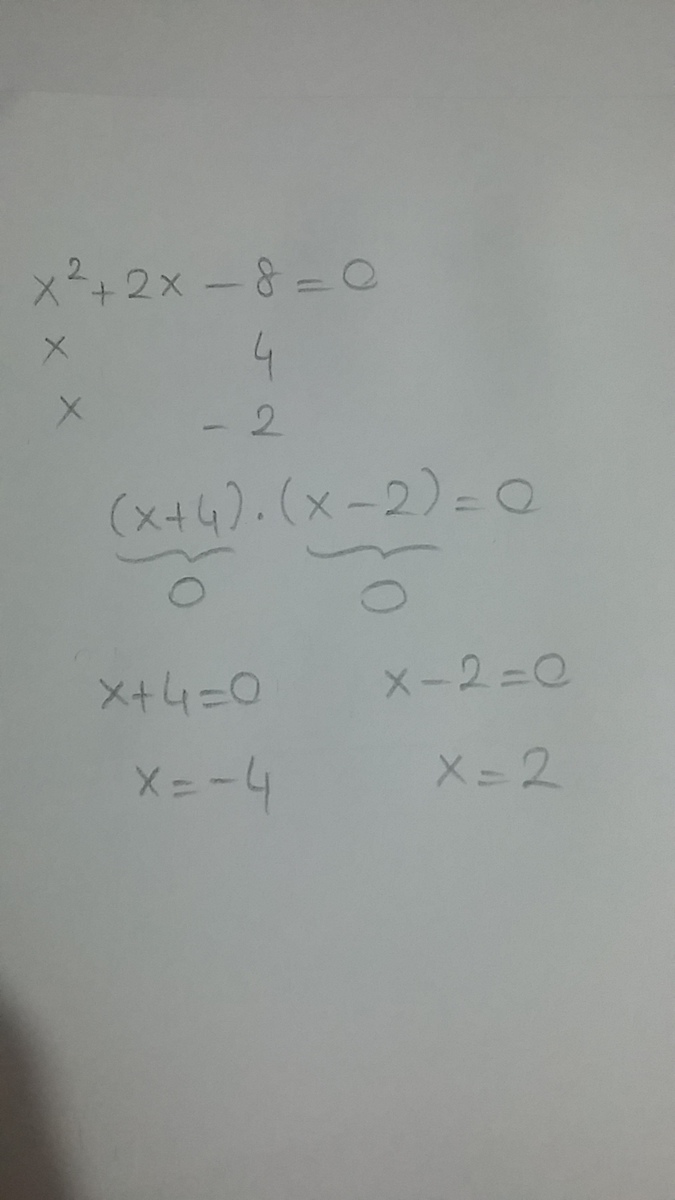 x²+2x-8=0
x 4
x -2
(x+4).(x-2)=0
0 0
x+4=0 x-2=0
x=-4 x=2